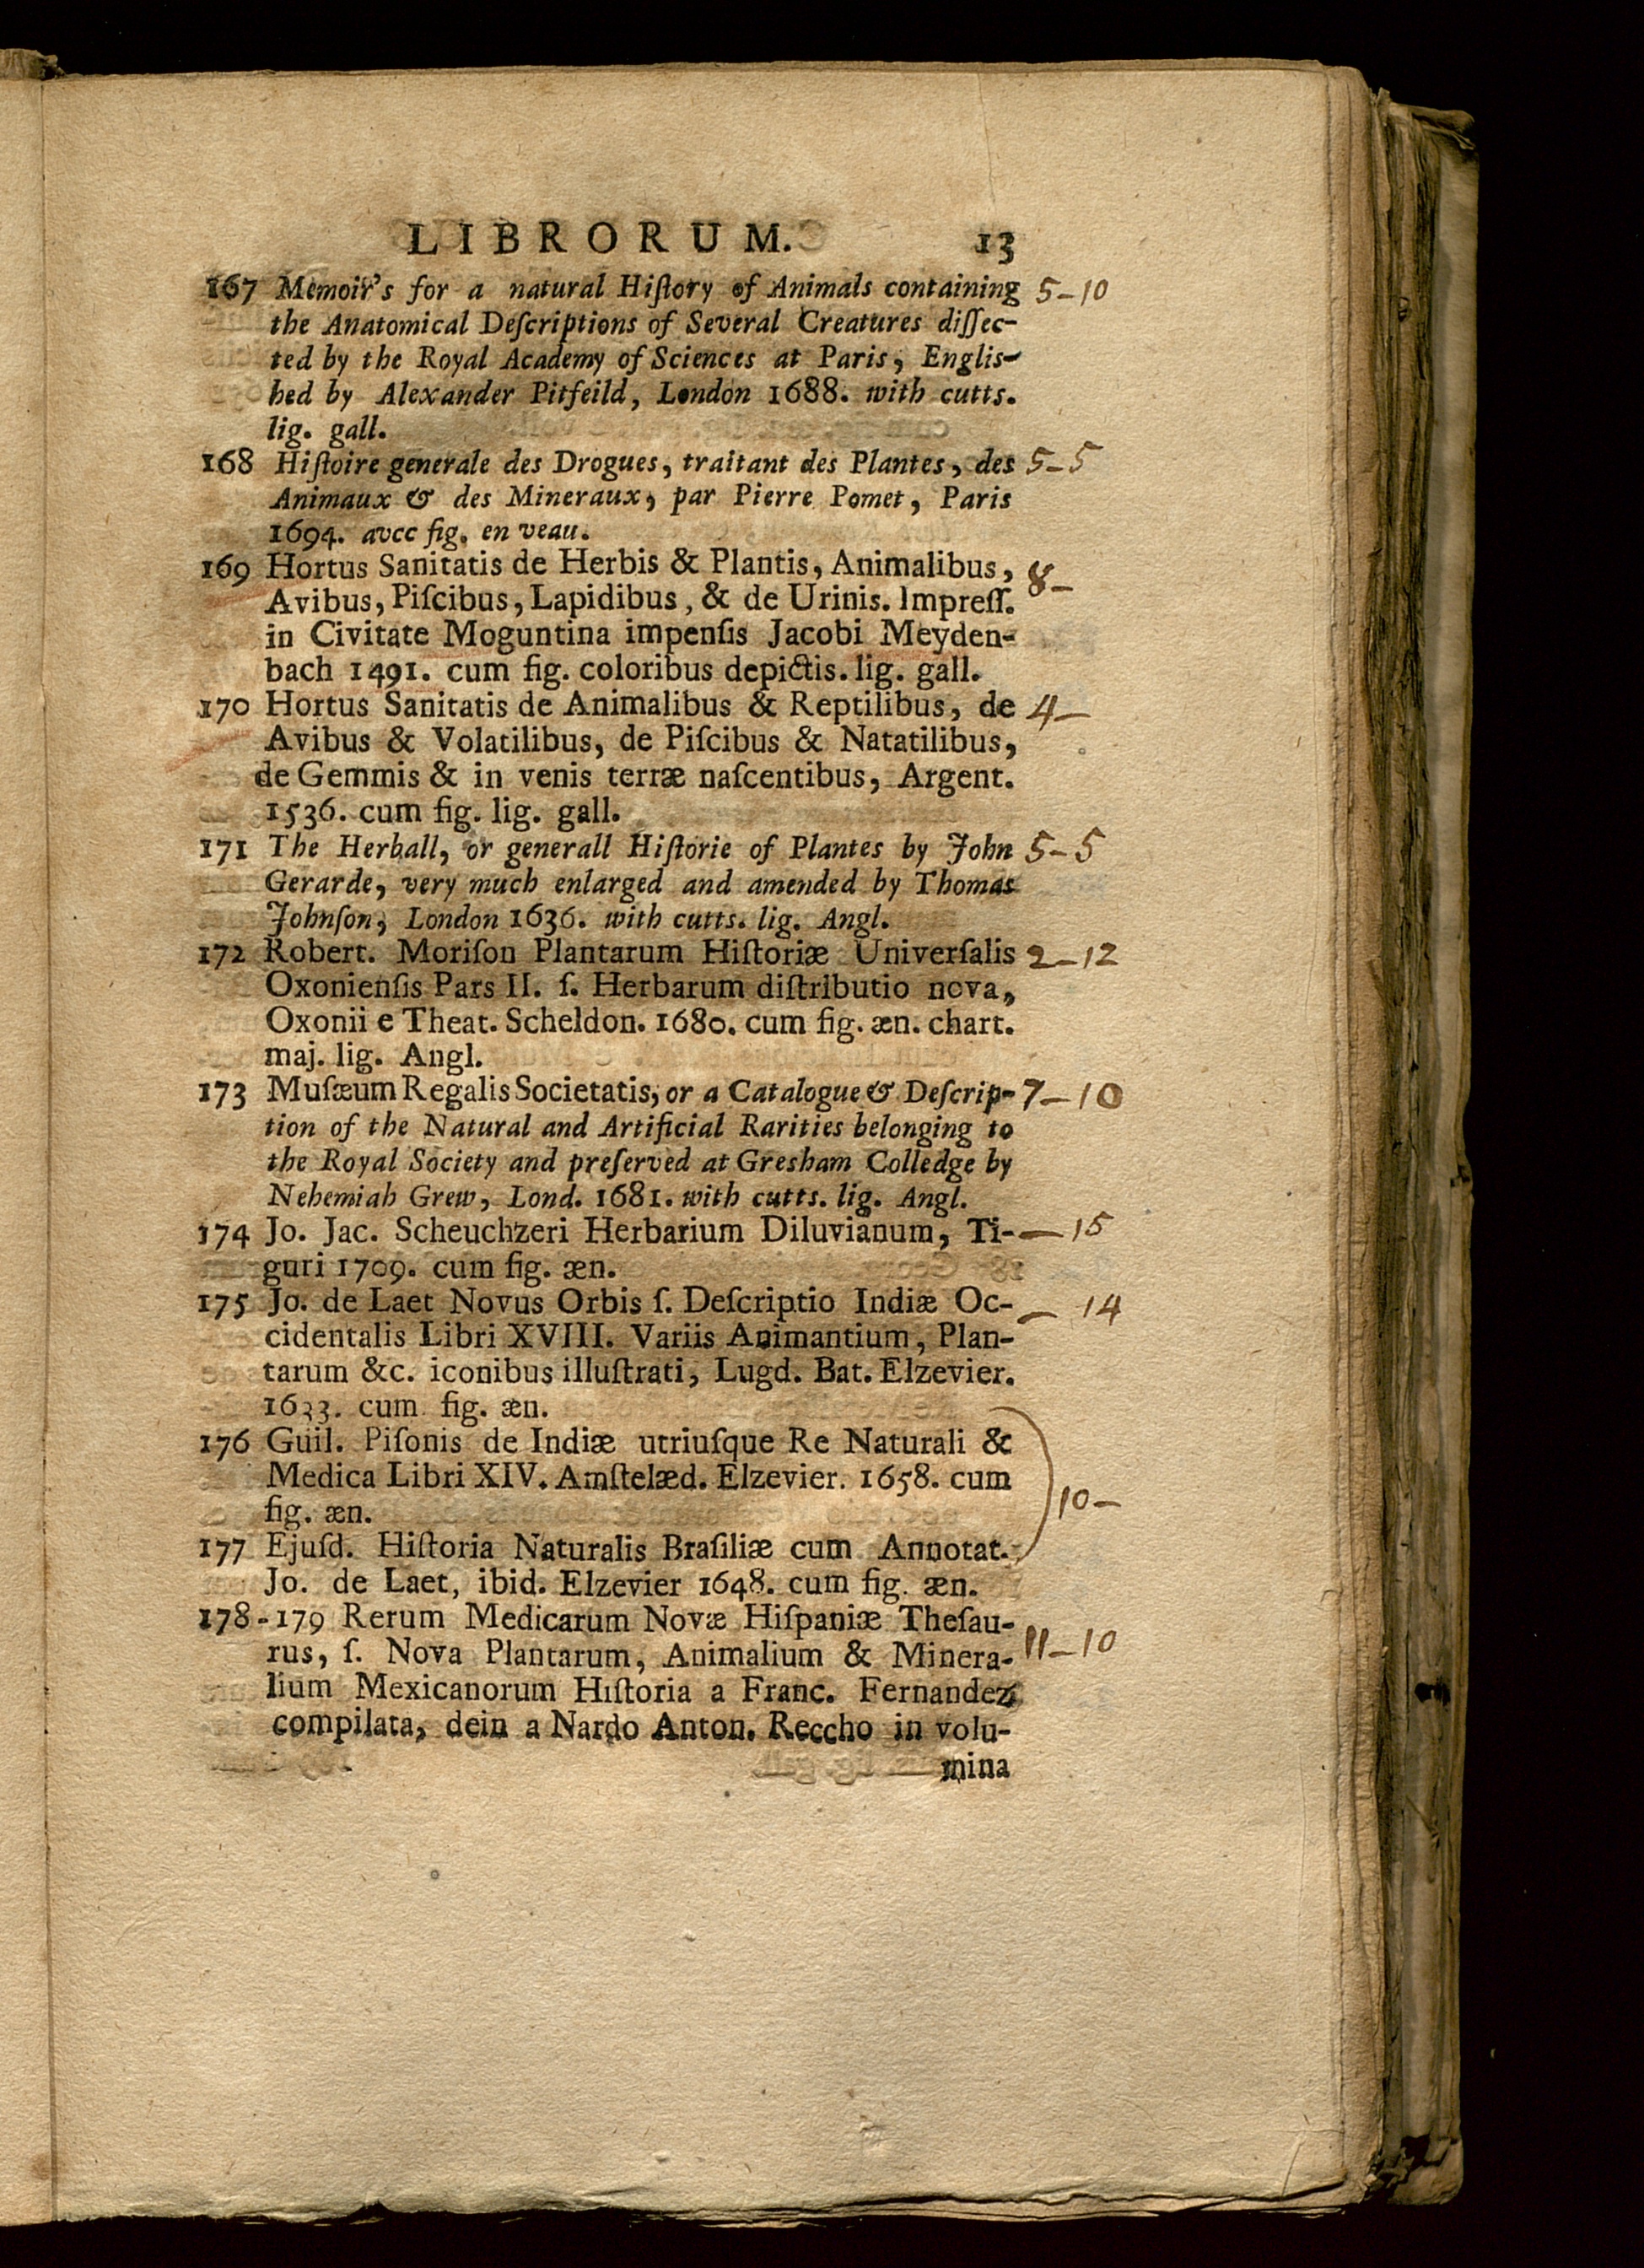 LIBRORUM. 13
167 Memoir's for a natural Hiſtory of Animals containing 5-10
the Anatomical Deſcriptions of Several Creatures diſſec-
ted by the Royal Academy of Sciences at Paris, Englis-
hed by Alexander Pitfeild, London 1688. with cutts.
lig. gall.
168 Hiſtoire generale des Drogues, traitant des Plantes, des 5-5
Animaux & des Mineraux, par Pierre Pomet, Paris
1694. avec fig. en veau.
169 Hortus Sanitatis de Herbis & Plantis, Animalibus, 8-
Avibus, Piſcibus, Lapidibus, & de Urinis. Impreſſ.
in Civitate Moguntina impenſis Jacobi Meyden-
bach 1491. cum fig. coloribus depictis. lig. gall.
170 Hortus Sanitatis de Animalibus & Reptilibus, de 4-
Avibus & Volatilibus, de Piſcibus & Natatilibus,
de Gemmis & in venis terræ naſcentibus, Argent.
1536. cum fig. lig. gall.
171 The Herball, or generall Hiſtorie of Plantes by John 5-5
Gerarde, very much enlarged and amended by Thomas
Johnſon, London 1636. with cutts. lig. Angl.
172 Robert. Moriſon Plantarum Hiſtoriæ Univerſalis 2-12
Oxonienſis Pars II. ſ. Herbarum diſtributio nova,
Oxonii e Theat. Scheldon. 1680. cum fig. æn. chart.
maj. lig. Angl.
173 Muſæum Regalis Societatis, or a Catalogue & Deſcrip- 7-10
tion of the Natural and Artificial Rarities belonging to
the Royal Society and preſerved at Gresham Colledge by
Nehemiah Grew, Lond. 1681. with cutts. lig. Angl.
174 Jo. Jac. Scheuchzeri Herbarium Diluvianum, Ti- — 15
guri 1709. cum fig. æn.
175 Jo. de Laet Novus Orbis ſ. Deſcriptio Indiæ Oc- — 14
cidentalis Libri XVIII. Variis Animantium, Plan-
tarum &c. iconibus illuſtrati, Lugd. Bat. Elzevier.
1633. cum fig. æn.
176 Guil. Piſonis de Indiæ utriuſque Re Naturali &
Medica Libri XIV. Amſtelæd. Elzevier. 1658. cum
fig. æn. 10-
177 Ejuſd. Hiſtoria Naturalis Braſiliæ cum Annotat.
Jo. de Laet, ibid. Elzevier 1648. cum fig. æn.
178-179 Rerum Medicarum Novæ Hiſpaniæ Theſau-
rus, ſ. Nova Plantarum, Animalium & Minera- 11-10
lium Mexicanorum Hiſtoria a Franc. Fernandez
compilata, dein a Nardo Anton. Reccho in volu-
mina